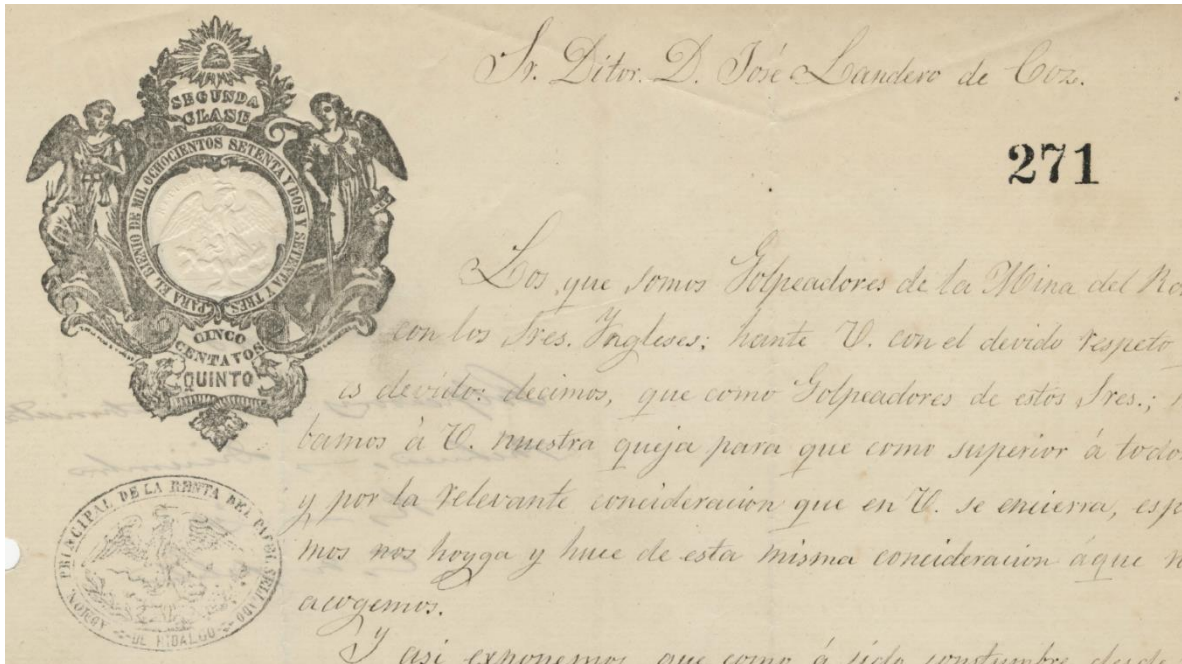 Sr. Ditor. D. José Landero de Coz.
271
SEGUNDA
CLASE
PARA EL BIENIO DE MIL OCHOCIENTOS SETENTA Y DOS Y SETENTA Y TRES.
CINCO
CENTAVOS
QUINTO
PRINCIPAL DE LA RENTA DEL PAPEL SELLADO
DE HIDALGO
Los que somos Golpeadores de la Mina del
con los Sres. Yngleses; hante V. con el devido respeto
es devido: decimos, que como Golpeadores de estos Sres.;
bamos á V. nuestra queja para que como superior á
y por la relevante concideracion que en V. se encierra,
mos nos hoyga y huce de esta misma concideracion áque
acogemos.
Y asi exponemos que como á sido constumbre desde